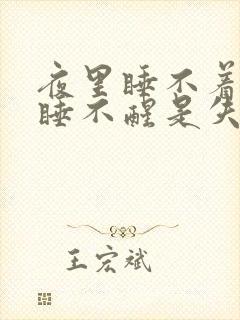 夜里睡不着
睡不醒是失
王宏斌